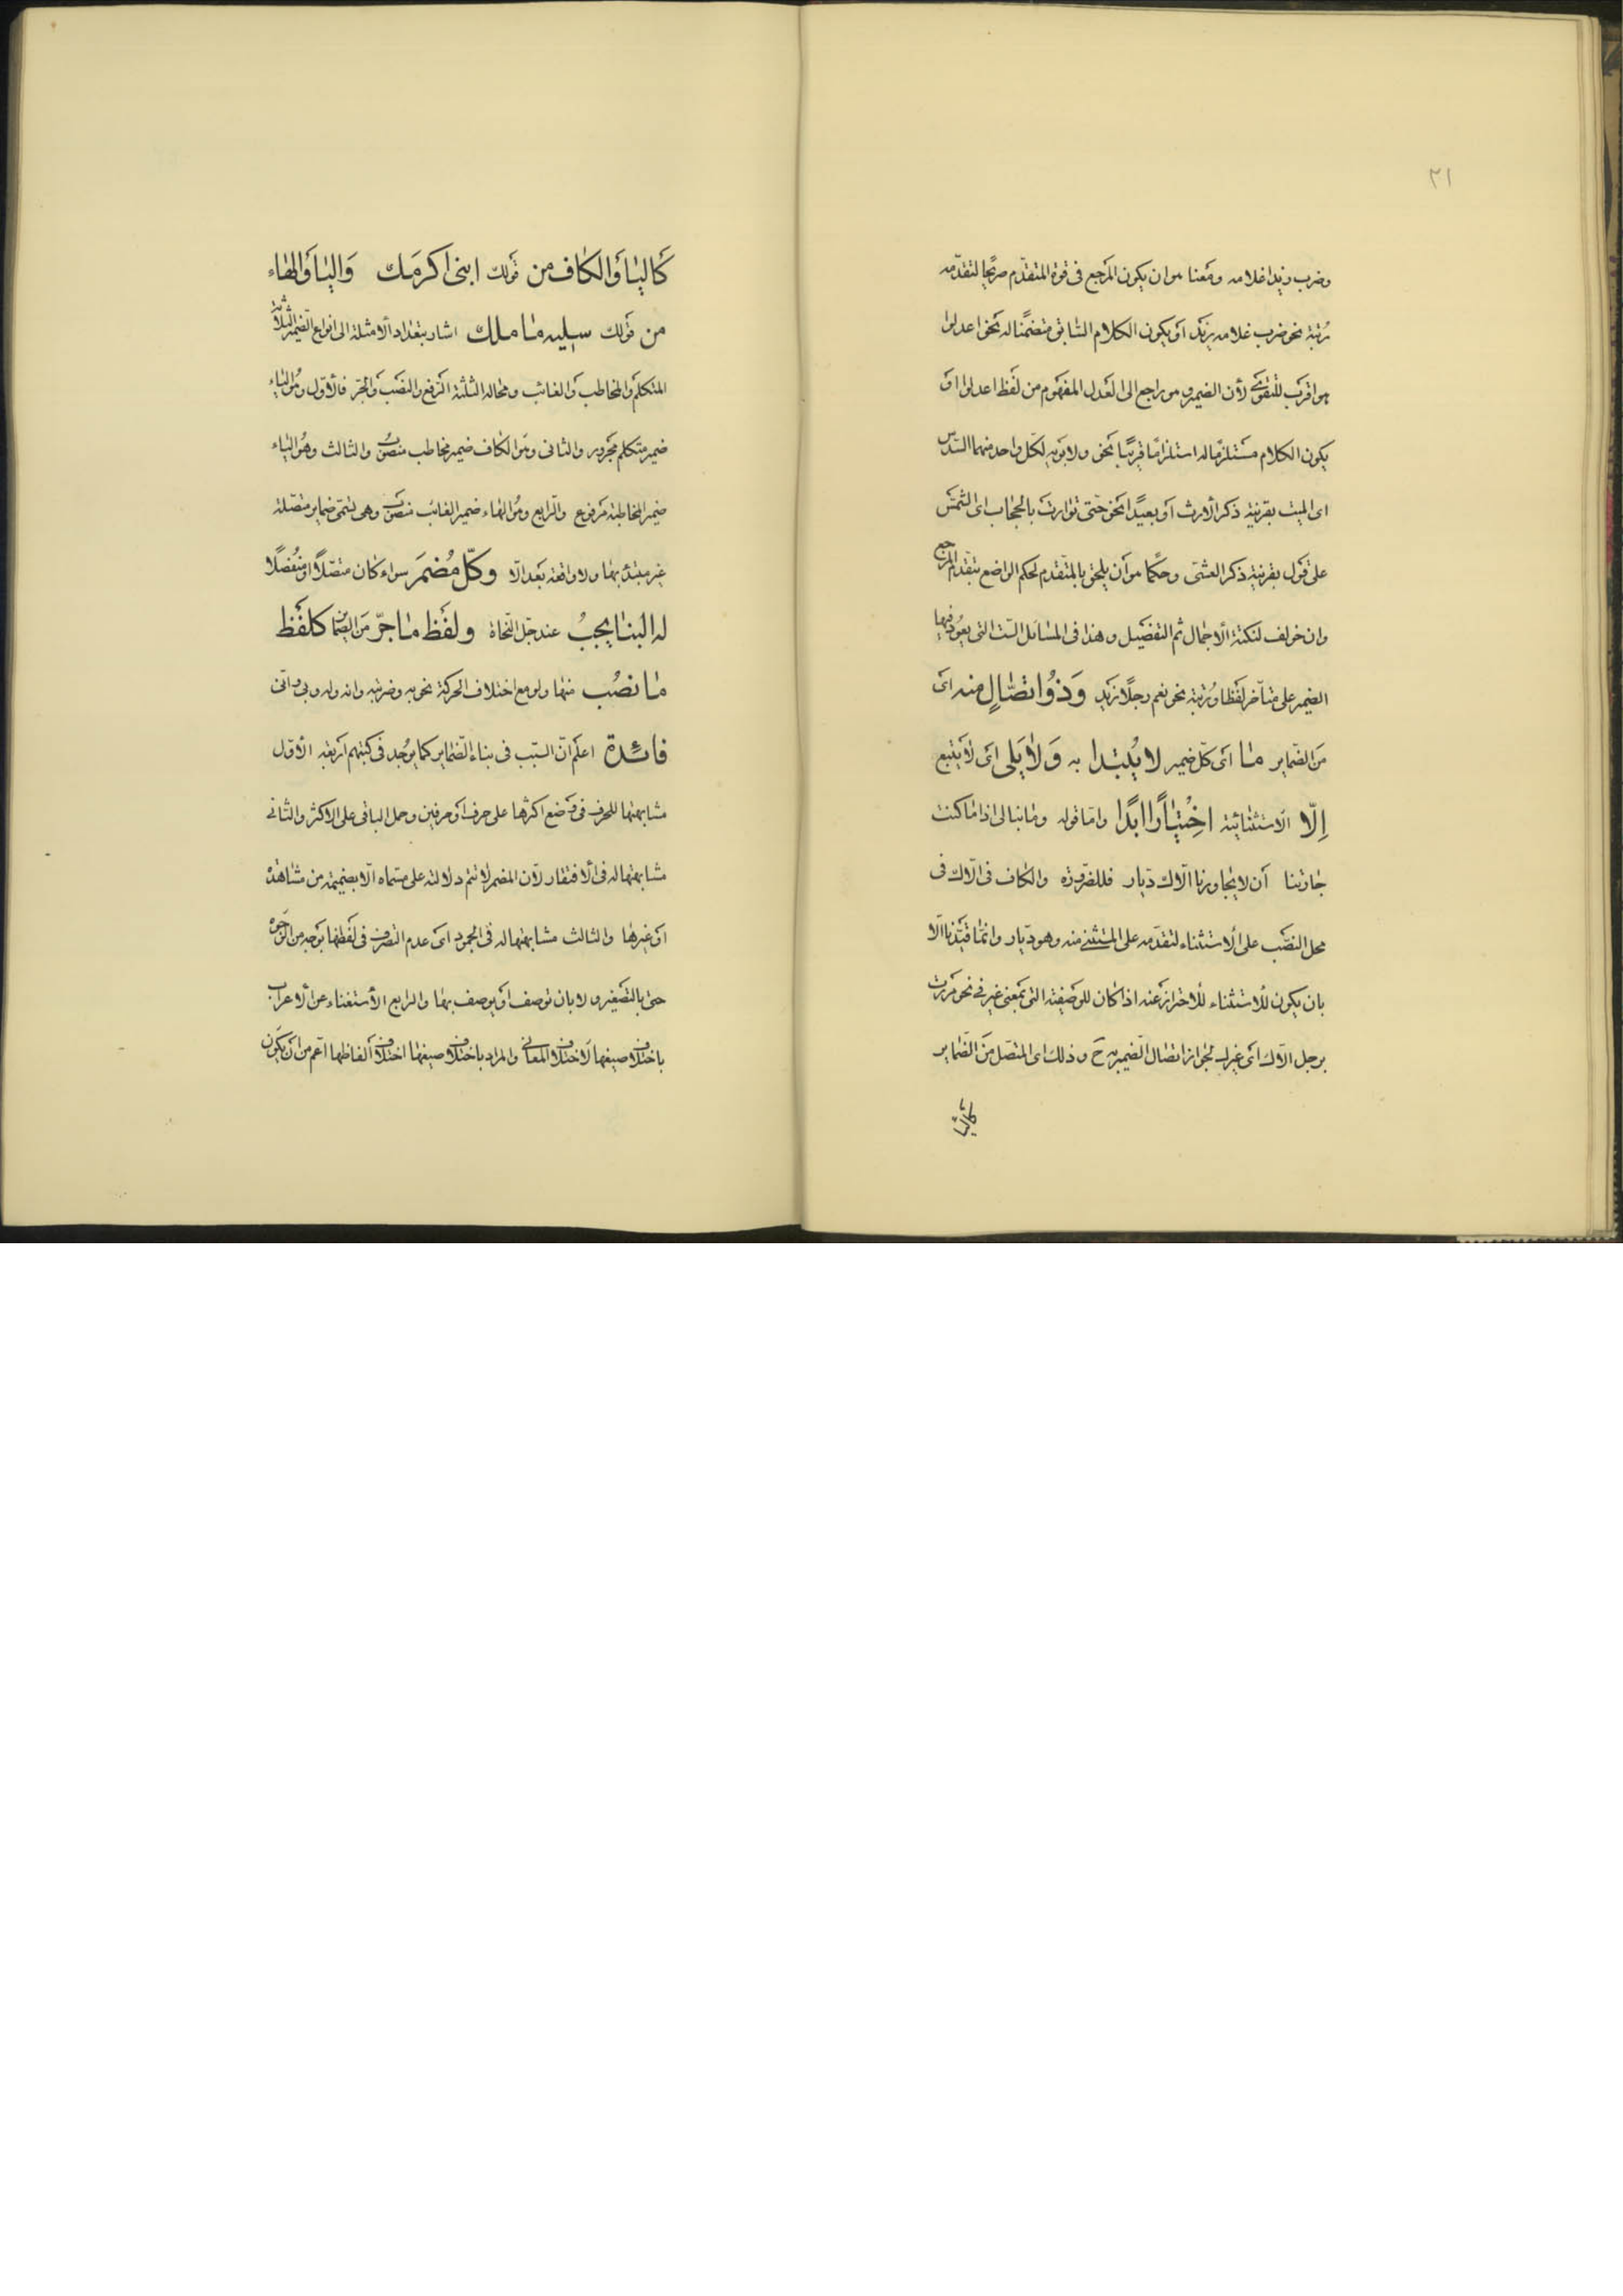 ٢١
وضرب زيدا غلامه ومعنا هو ان يكون المرجع فى قوة المتقدم صريحا لتقدمه
رتبة نحو ضرب غلامه زيد او يكون الكلام السابق متضمنا له نحو اعدلوا
هو اقرب للتقوى لأن الضمير هو راجع الى العدل المفهوم من لفظ اعدلوا او
يكون الكلام مستلزما له استلزاما قريبا نحو ولابويه لكل واحد منهما السدس
اى الميت بقرينة ذكر الأرث او بعيدا نحو حتى توارت بالحجاب اى الشمس
على قول بقرينة ذكر العشى وحكما هو ان يلحق بالمتقدم لحكم الواضع بتقدم المرجع
وان خولف لنكتة الأجمال ثم التفضيل وهذا فى المسائل الست التى يعود فيها
الضمير على متأخر لفظا ورتبة نحو نعم رجلا زيد وَذُو اتصّالٍ منه اى
من الضماير ما اى كل ضمير لا يُبتدا به وَلا يَلى اى لا يتبع
اِلّا الاستثنائية اخْتِيَارًا ابدًا واما قوله وما نبالى اذا ما كنت
جارتنا أن لا يجاورنا الاك ديار فللضرورة والكاف فى الاك فى
محل النصب على الأستثناء لتقدمه على المستثنى منه وهو ديار وانما قيدنا الا
بان يكون للأستثناء للأحتراز عنه اذا كان للوصفية التى بمعنى غير فى نحو مررت
برجل الاك اى غيرك لجواز اتصال الضمير به ح وذلك اى المتصل من الضماير
كاليا
كَاليٰاَ وَالكاف من قولك ابنى اكرمَك وَاليٰا وَالهٰاء
من قولك سليه ما ملك اشار بتعداد الأمثلة الى انواع الضمير الثلاثة
المتكلم والمخاطب والغائب ومحاله الثلثة الرفع والنصب والجر فالأول وهو الياء
ضمير متكلم مجرور والثانى وهو الكاف ضمير مخاطب منصوب والثالث وهو الياء
ضمير المخاطبة مرفوع والرابع وهو الهاء ضمير الغائب منصوب وهى تسمى ضماير متصلة
غير مبتدء بها ولا واقعة بعد الّا وكلّ مُضمَر سواء كان متصّلاً او منفصلاً
له البنا يجبُ عند جل النحاة ولفظ ما جرّ من الضما كلفظ
ما نصُب منها ولو مع اختلاف الحركة نحو به وضربته وانه وله وبى وانى
فائدة اعلم ان السبب فى بناء الضماير كما يوجد فى كتبهم اربعة الأول
مشابهتها للحرف فى وضع اكثرها على حرف او حرفين وحمل الباقى على الاكثر والثانى
مشابهتها له فى الأفتقار لان المضمر لا تتم دلالته على مسماه الا بضميمة من مشاهدة
او غيرها والثالث مشابهتها له فى الجمود اى عدم التصرف فى لفظها بوجه من الوجوه
حتى بالتصغير ولا بان توصف او يوصف بها والرابع الأستغناء عن الأعراب
باختلاف صيغها لاختلاف المعانى والمراد باختلاف صيغها اختلاف ألفاظها اعم من ان يكون